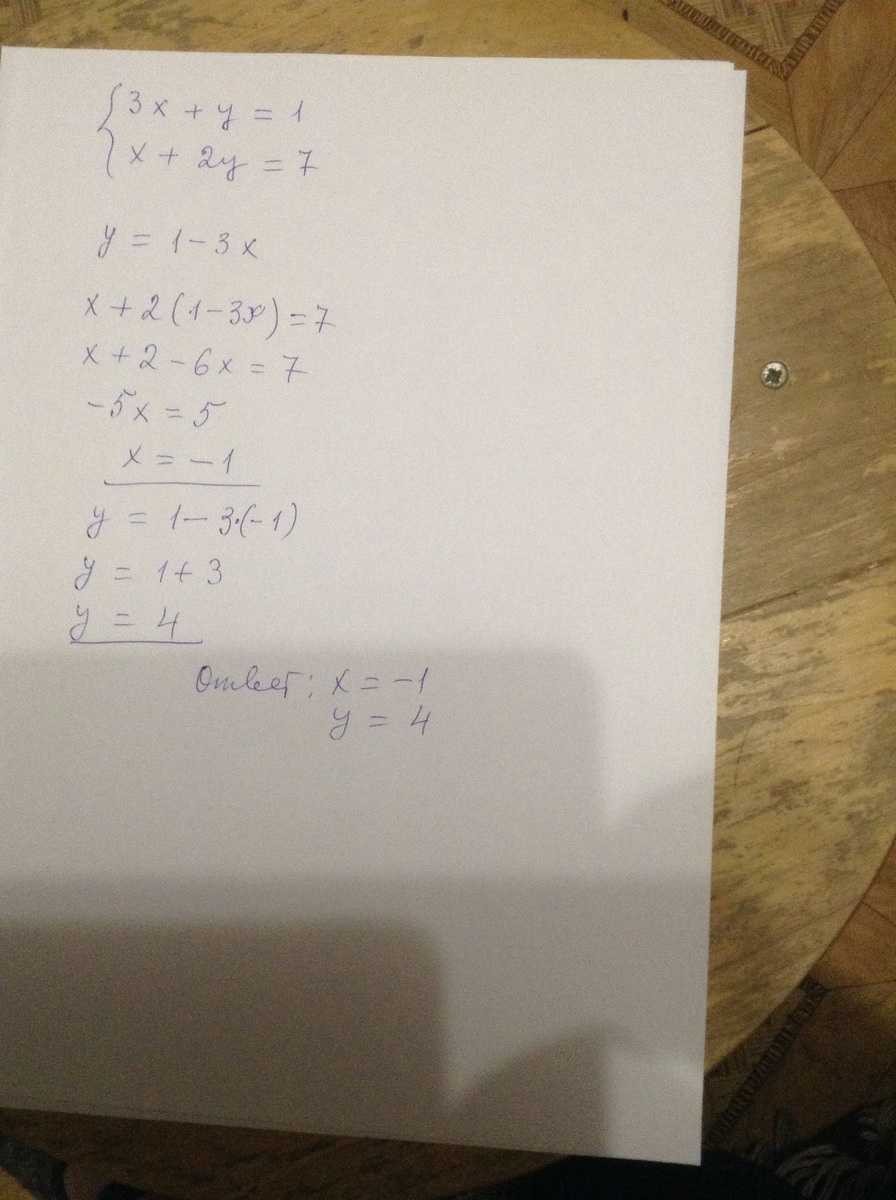 {3x + y = 1
x + 2y = 7
y = 1 - 3x
x + 2(1 - 3x) = 7
x + 2 - 6x = 7
-5x = 5
x = -1
y = 1 - 3·(-1)
y = 1 + 3
y = 4
Ответ: x = -1
y = 4